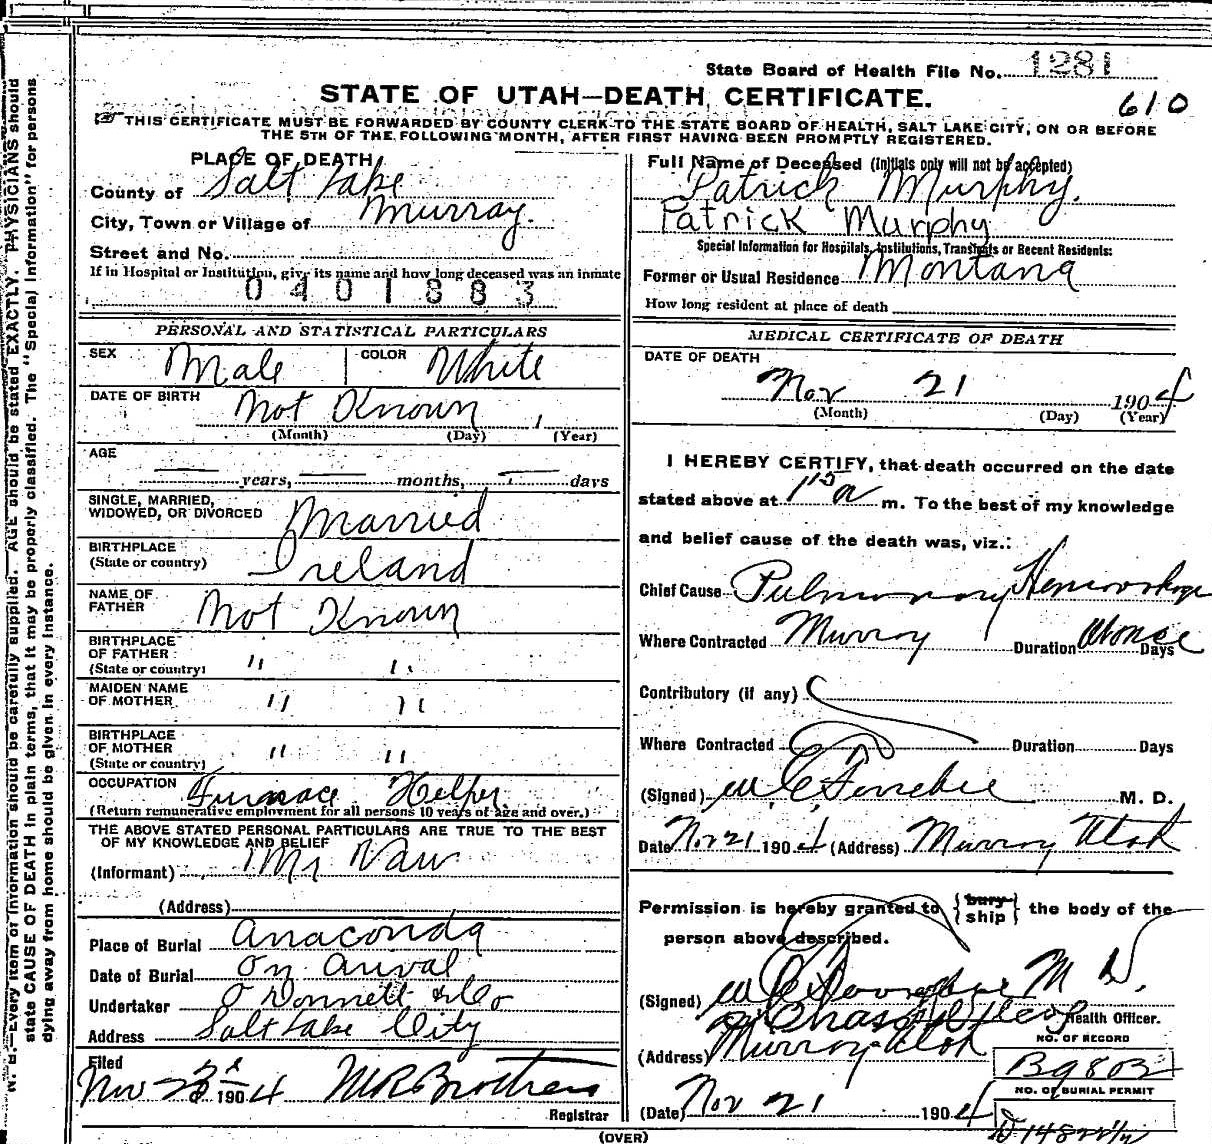 State Board of Health File No. 1281
610
STATE OF UTAH—DEATH CERTIFICATE.
THIS CERTIFICATE MUST BE FORWARDED BY COUNTY CLERK TO THE STATE BOARD OF HEALTH, SALT LAKE CITY, ON OR BEFORE
THE 5TH OF THE FOLLOWING MONTH, AFTER FIRST HAVING BEEN PROMPTLY REGISTERED.
PLACE OF DEATH
County of Salt Lake
City, Town or Village of Murray.
Street and No.
If in Hospital or Institution, give its name and how long deceased was an inmate
0401883
PERSONAL AND STATISTICAL PARTICULARS
SEX Male COLOR White
DATE OF BIRTH Not Known
(Month) (Day) (Year)
AGE
years, months, days
SINGLE, MARRIED,
WIDOWED, OR DIVORCED Married
BIRTHPLACE
(State or country) Ireland
NAME OF
FATHER Not Known
BIRTHPLACE
OF FATHER
(State or country) " "
MAIDEN NAME
OF MOTHER " "
BIRTHPLACE
OF MOTHER
(State or country) " "
OCCUPATION Furnace Helper
(Return remunerative employment for all persons 10 years of age and over.)
THE ABOVE STATED PERSONAL PARTICULARS ARE TRUE TO THE BEST
OF MY KNOWLEDGE AND BELIEF
(Informant) Mr
(Address)
Place of Burial Anaconda
Date of Burial On Arival
Undertaker O'Donnell & Co
Address Salt Lake City
Filed
Nov 1904 M R Brothers
Registrar
Full Name of Deceased (Initials only will not be accepted)
Patrick Murphy.
Patrick Murphy
Special Information for Hospitals, Institutions, Transients or Recent Residents:
Former or Usual Residence Montana
How long resident at place of death
MEDICAL CERTIFICATE OF DEATH
DATE OF DEATH
Nov 21 1904
(Month) (Day) (Year)
I HEREBY CERTIFY, that death occurred on the date
stated above at 1 15 a m. To the best of my knowledge
and belief cause of the death was, viz.:
Chief Cause Pulmonary Hemorrhage
Where Contracted Murray Duration at once Days
Contributory (if any)
Where Contracted Duration Days
(Signed) W C M. D.
Date Nov 21 1904 (Address) Murray Utah
Permission is hereby granted to { bury ship } the body of the
person above described.
(Signed) W C M D.
Chas Health Officer.
(Address) Murray Utah
NO. OF RECORD
B9802
NO. OF BURIAL PERMIT
(Date) Nov 21 1904
(OVER)
N. B.—Every item of information should be carefully supplied. AGE should be stated EXACTLY. PHYSICIANS should
state CAUSE OF DEATH in plain terms, that it may be properly classified. The "Special Information" for persons
dying away from home should be given in every instance.